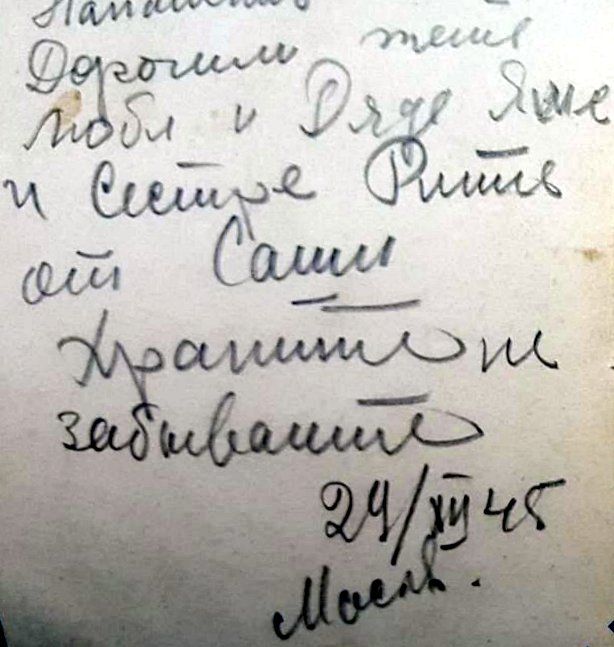 Дорогим тете
Любе и Дяде Яше
и Сестре Рите
от Саши
Храните не
забывайте
29/XII 45
Москва.